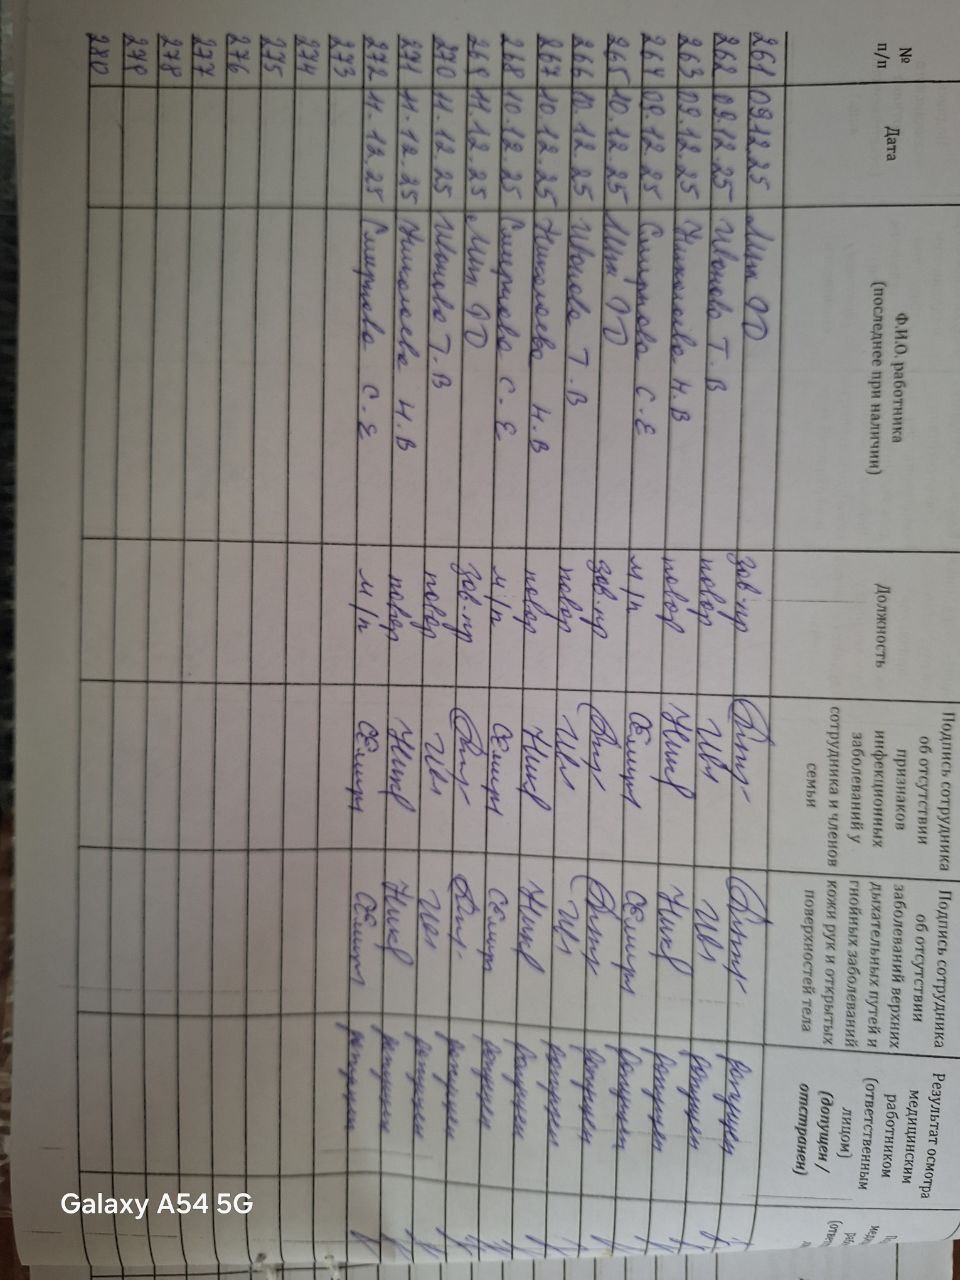 № п/п
Дата
Ф.И.О. работника (последнее при наличии)
Должность
Подпись сотрудника об отсутствии признаков инфекционных заболеваний у сотрудника и членов семьи
Подпись сотрудника об отсутствии заболеваний верхних дыхательных путей и гнойных заболеваний кожи рук и открытых поверхностей тела
Результат осмотра медицинским работником (ответственным лицом) (допущен / отстранен)
261 09.12.25 зав.пр допущен
262 09.12.25 Иванова Т.В повар Ив допущен
263 09.12.25 Николаева Н.В повар Ник допущен
264 09.12.25 Смирнова С.Е м/п допущен
265 10.12.25 зав.пр допущен
266 10.12.25 Иванова Т.В повар Ив допущен
267 10.12.25 Николаева Н.В повар Ник допущен
268 10.12.25 Смирнова С.Е м/п допущен
269 11.12.25 зав.пр допущен
270 11.12.25 Иванова Т.В повар Ив допущен
271 11.12.25 Николаева Н.В повар Ник допущен
272 11.12.25 Смирнова С.Е м/п допущен
273
274
275
276
277
278
279
280
Galaxy A54 5G